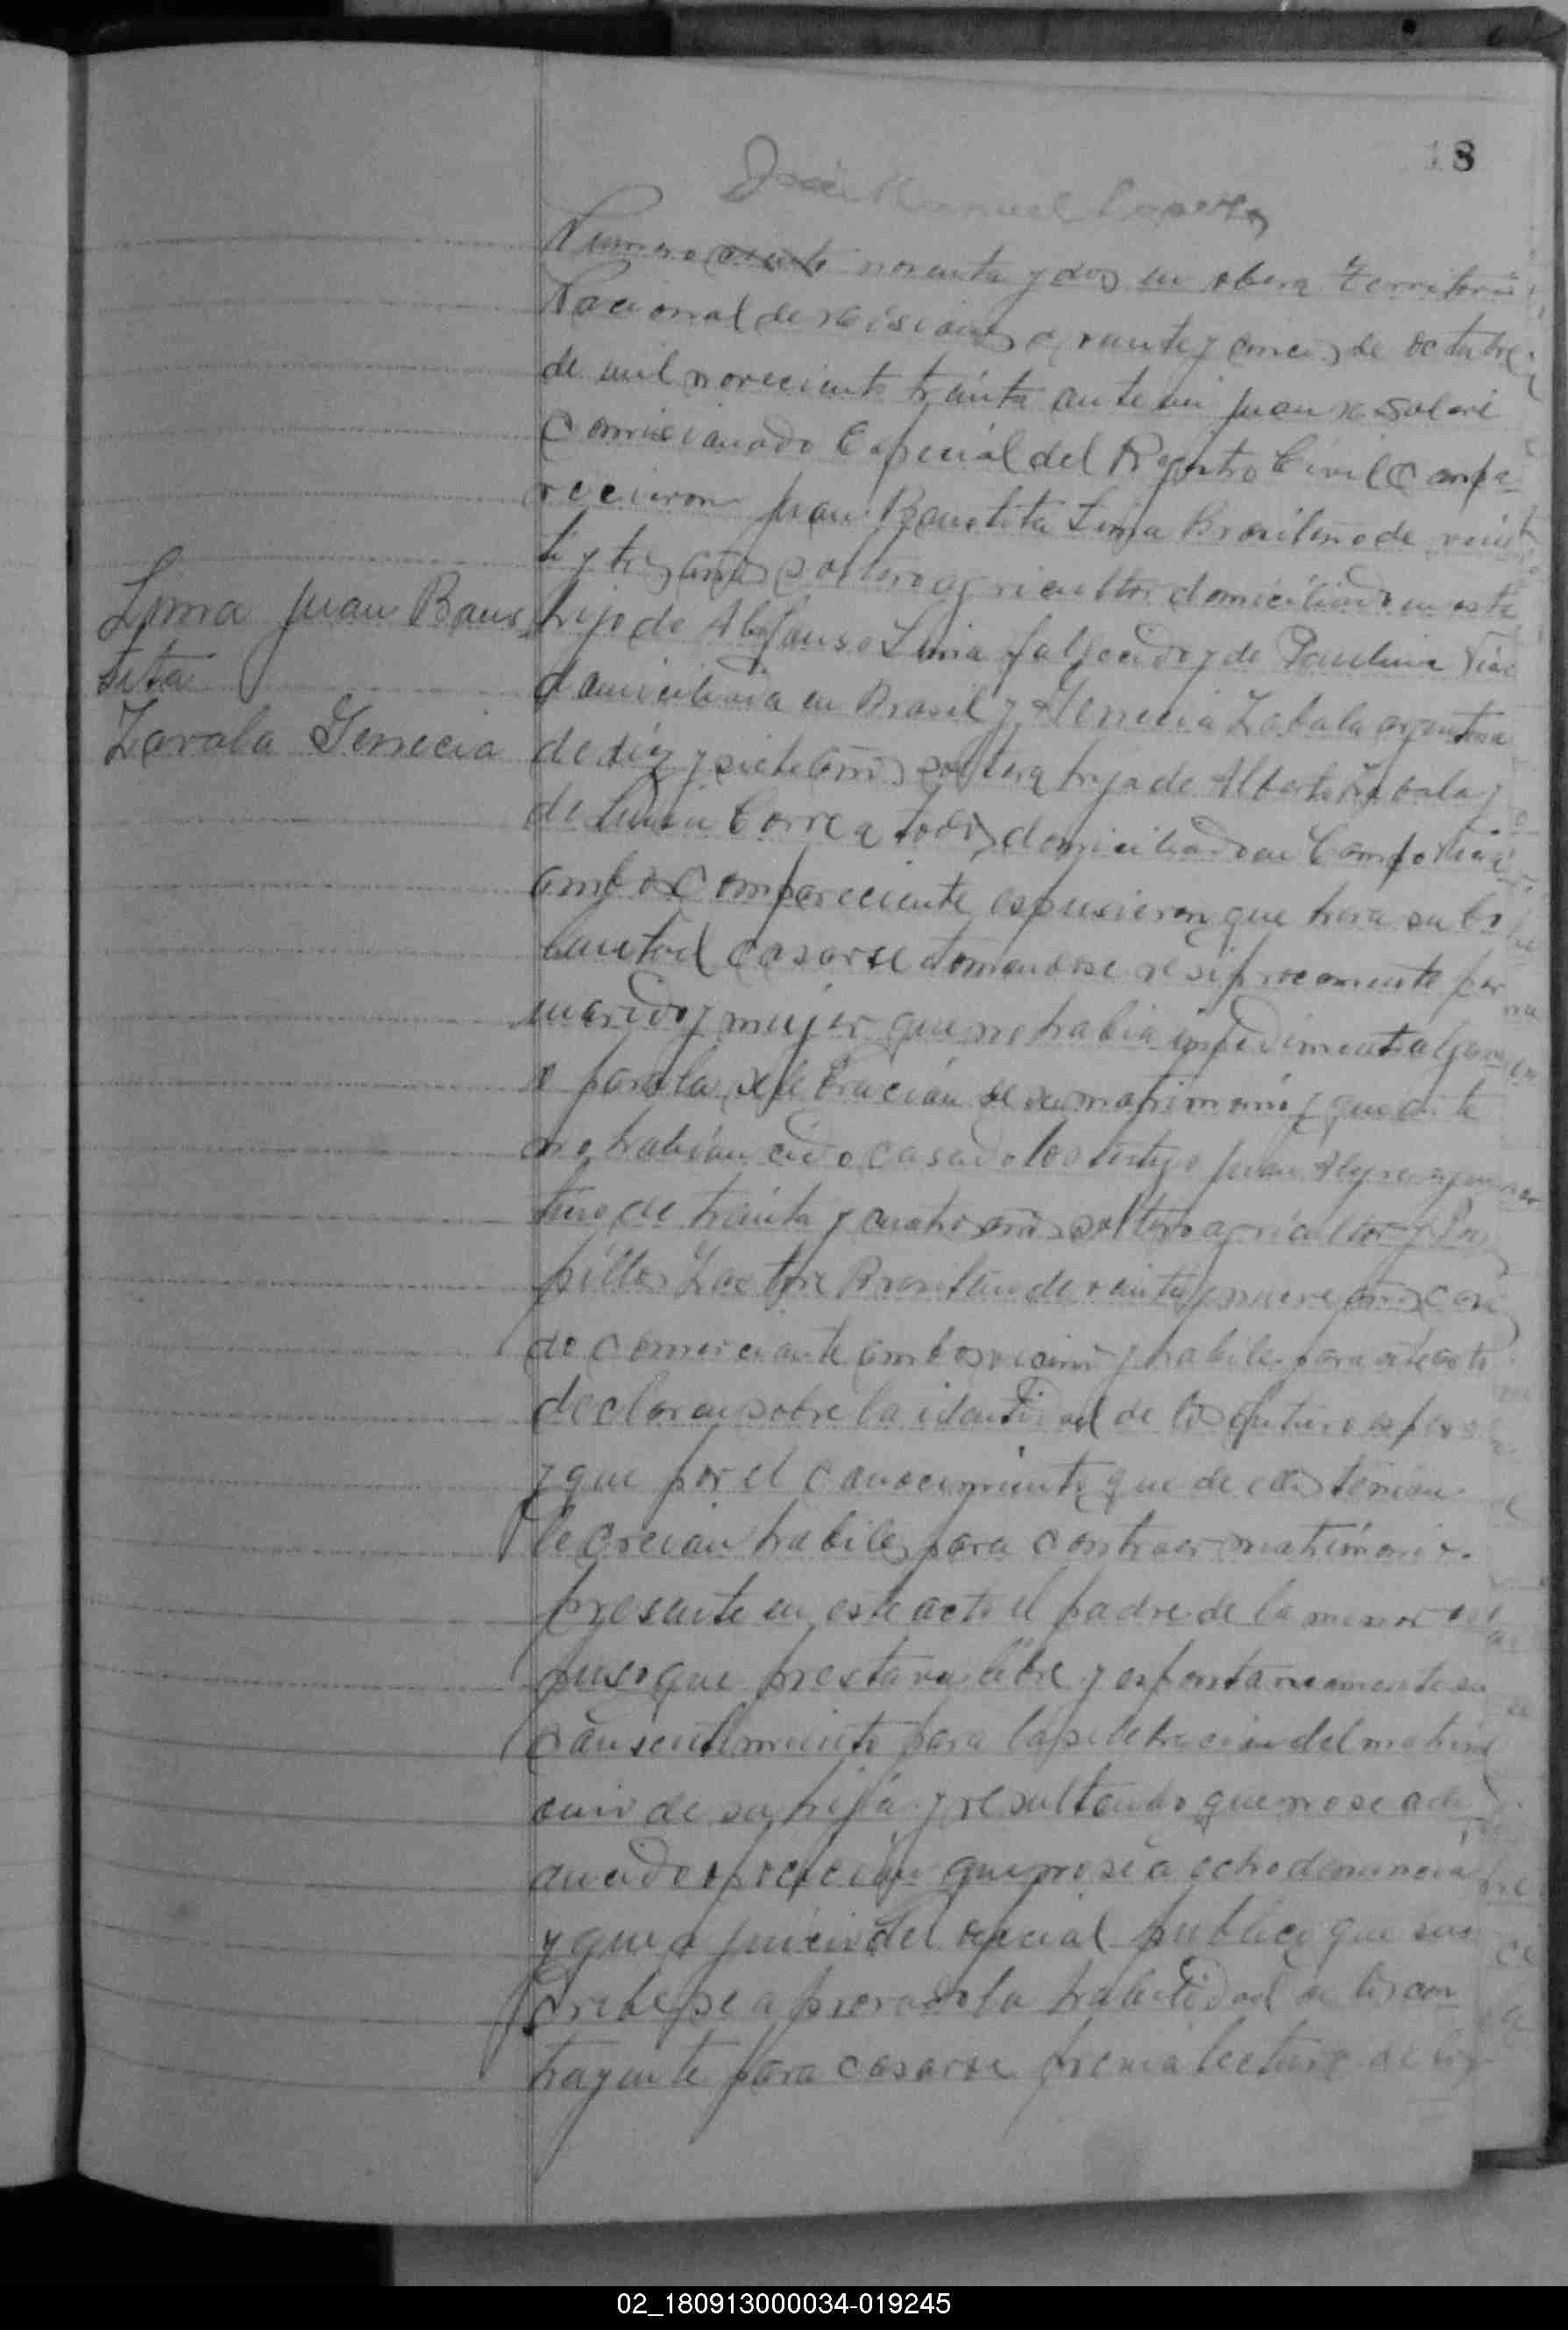 18
José Manuel
Numero noventa y dos en obera Territorio
Nacional de Misiones a vante y cinco de octubre
de mil noveciento tráinta ante mi Juan
Comicionado Especiál del Registro Civil Compa-
recieron Juan Bautista Lima Brasileño de vein
ti y tres años soltero agricultor domiciliado en esta
Lima Juan Baus
hijo de Alfonso Lima fallecido y de Paulina
tita
domiciliada en Brasil y Genecia Zabala argentina
Zavala Genecia
de diez y siete años soltera hija de Alberto Zabala y
de Correa todos domiciliado en Campo
ambos Compareciente espusieron que hera su bo
luntad casarse tomandose resiprocamente por
marido y mujer que no habia impedimento algun
o para la selebración de su matrimonio y que ante
no habian cido casado los testigo Juan
tino de tráinta y cuatro años soltero agricultor y
Brasileño de vainte y nueve años casa
do Comerciante ambos vecino y habile para este acto
declaran sobre la identidad de los futuro esposo
y que por el conocimiento que de ellos tenian
le creian habiles para contraer matrimonio.
presente en este acto el padre de la menor es
puso que prestava libre y espontaneamente su
consentimiento para la selebracion del matrim
onio de su hija y resultando que no se a de
ducido oposición que no se a echo denuncia
y que a juicio del oficial publico que sus
cribe se a provado la habilidad de los con
trayente para casarse previa lectura de los
02_180913000034-019245